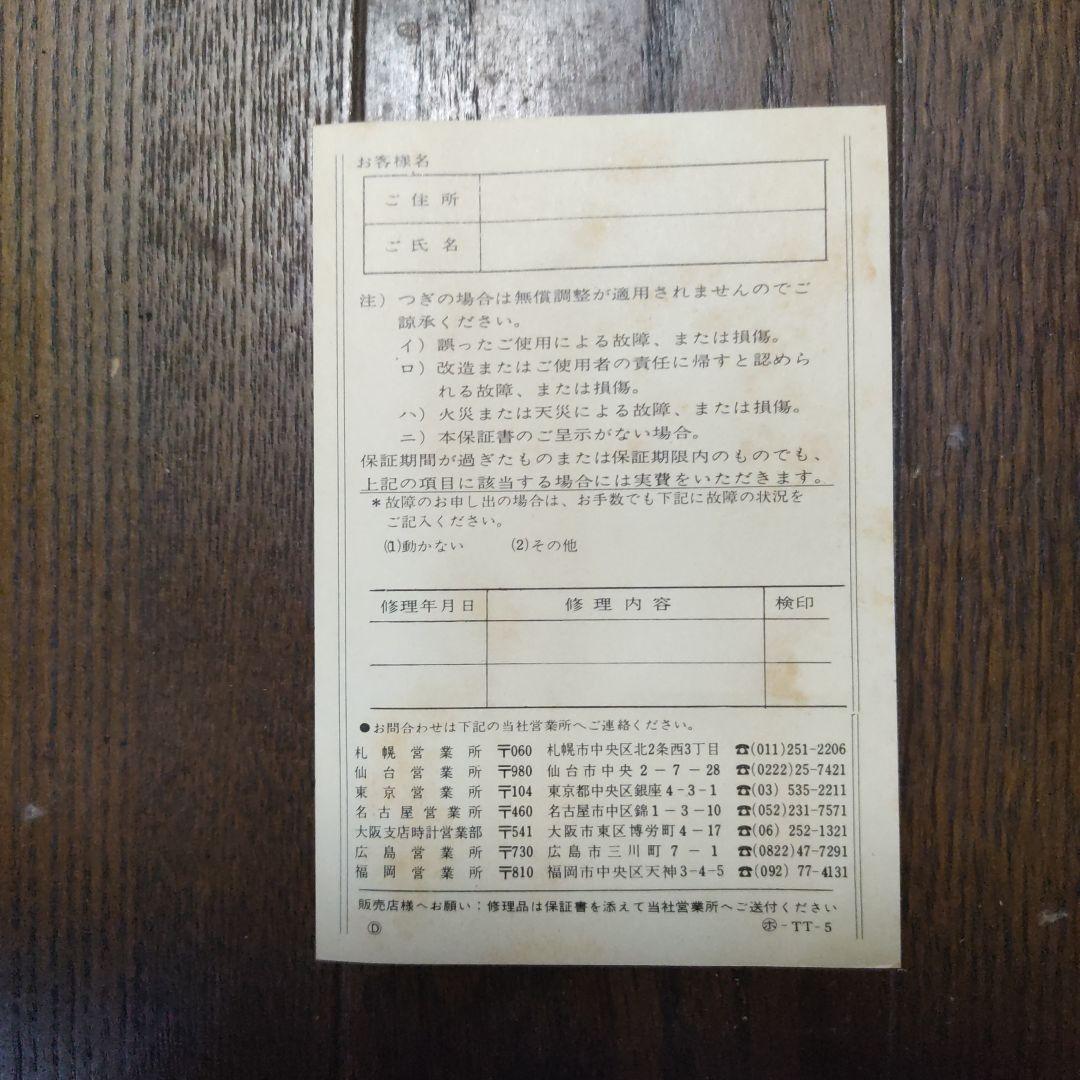 お客様名
ご住所
ご氏名
注）つぎの場合は無償調整が適用されませんのでご
諒承ください。
イ）誤ったご使用による故障、または損傷。
ロ）改造またはご使用者の責任に帰すと認めら
れる故障、または損傷。
ハ）火災または天災による故障、または損傷。
ニ）本保証書のご呈示がない場合。
保証期間が過ぎたものまたは保証期限内のものでも、
上記の項目に該当する場合には実費をいただきます。
＊故障のお申し出の場合は、お手数でも下記に故障の状況を
ご記入ください。
(1)動かない　(2)その他
修理年月日　修理内容　検印
●お問合わせは下記の当社営業所へご連絡ください。
札幌営業所　〒060　札幌市中央区北2条西3丁目　☎(011)251-2206
仙台営業所　〒980　仙台市中央2-7-28　☎(0222)25-7421
東京営業所　〒104　東京都中央区銀座4-3-1　☎(03) 535-2211
名古屋営業所　〒460　名古屋市中区錦1-3-10　☎(052)231-7571
大阪支店時計営業部　〒541　大阪市東区博労町4-17　☎(06) 252-1321
広島営業所　〒730　広島市三川町7-1　☎(0822)47-7291
福岡営業所　〒810　福岡市中央区天神3-4-5　☎(092) 77-4131
販売店様へお願い：修理品は保証書を添えて当社営業所へご送付ください
Ⓓ　㋭-TT-5